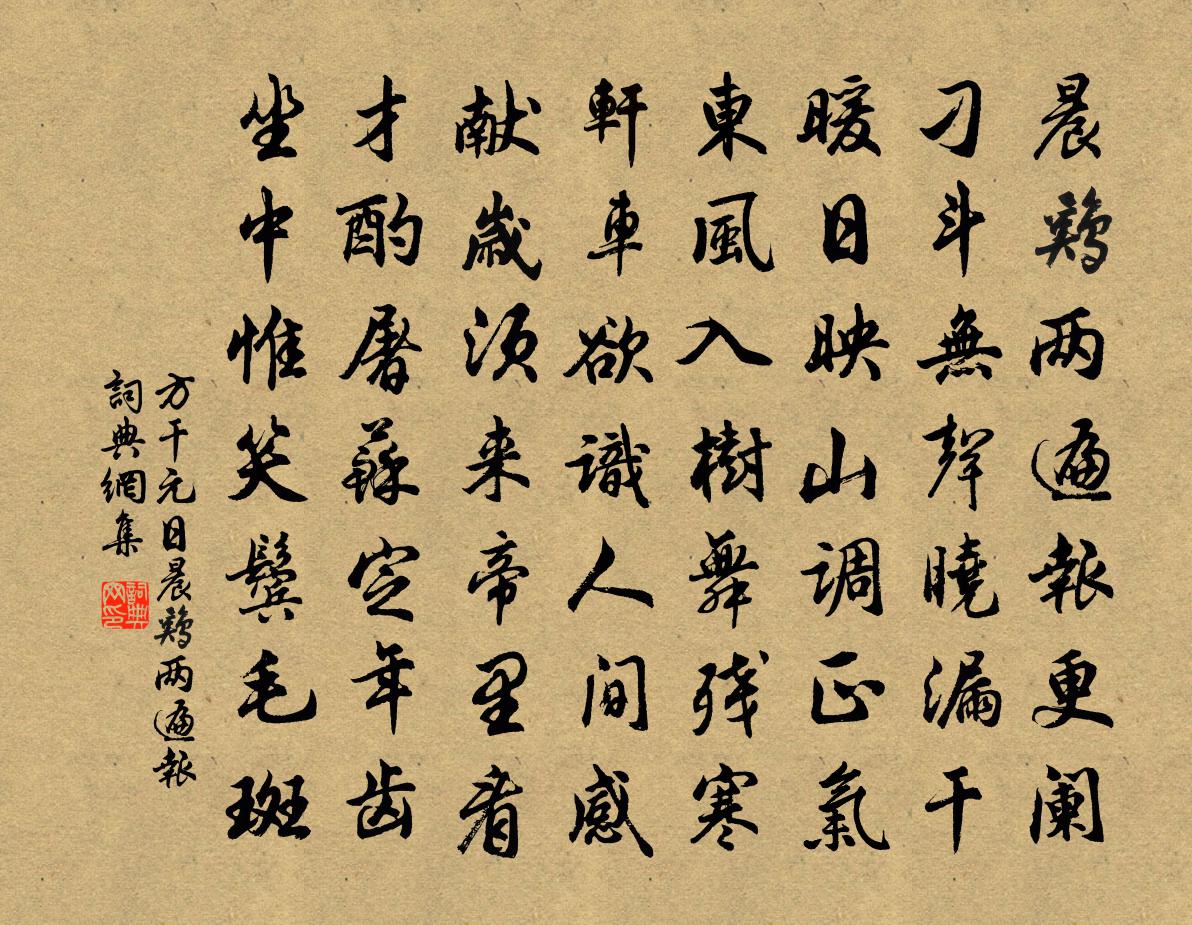 晨鷄两遍報更阑
刁斗無聲曉漏干
暖日映山调正氣
東風入樹舞残寒
軒車欲識人间感
献歲须来帝里看
才酌屠蘇定年齿
坐中惟笑鬓毛斑
方干元日晨鷄两遍報
詞典網集
詞典
网印